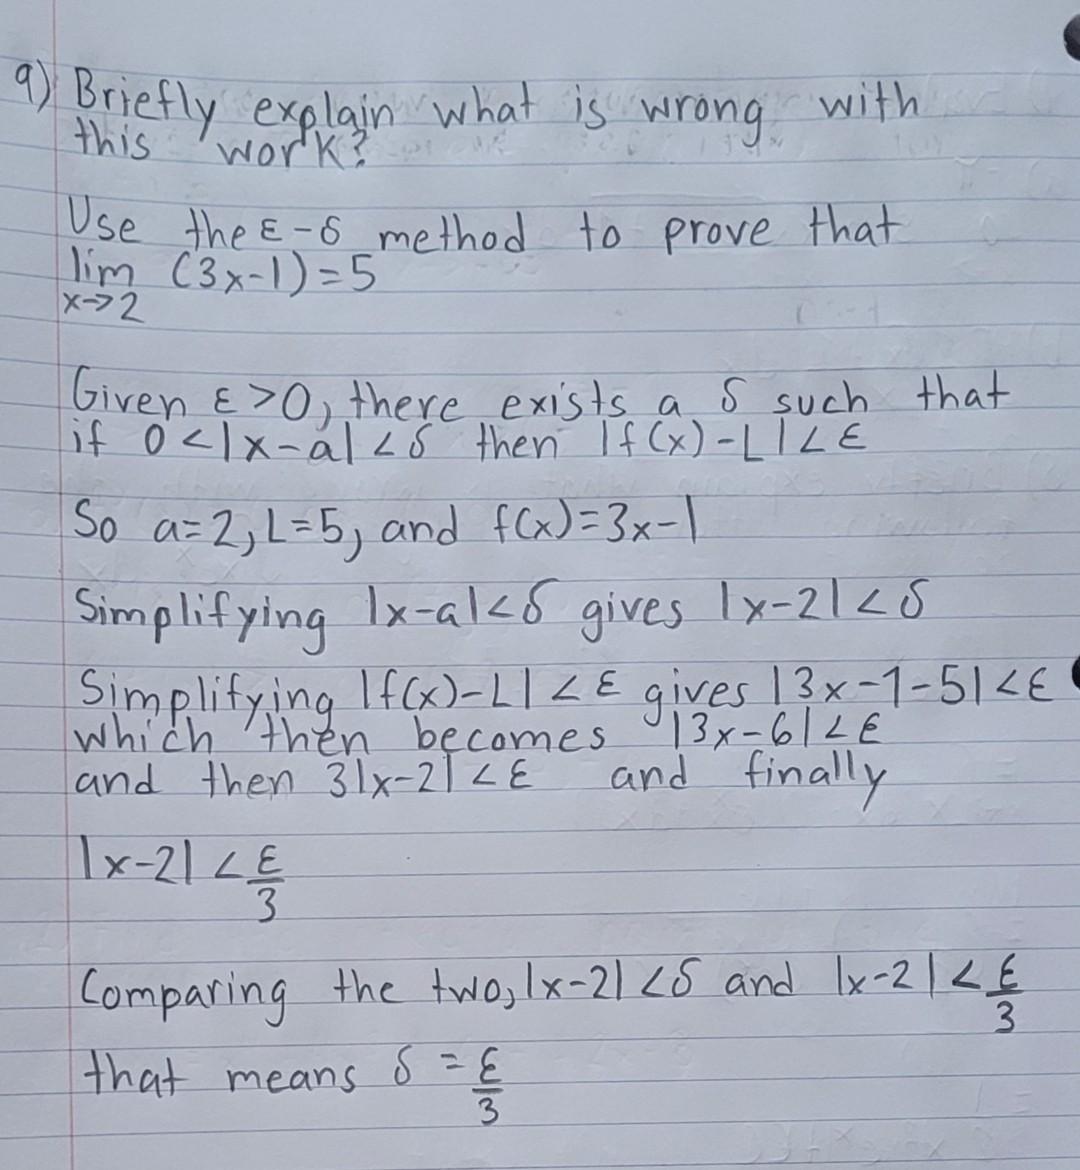 9) Briefly explain what is wrong with
this work?
Use the ε-δ method to prove that
lim (3x-1)=5
x→2
Given ε>0, there exists a δ such that
if 0<|x-a|<δ then |f(x)-L|<ε
So a=2, L=5, and f(x)=3x-1
Simplifying |x-a|<δ gives |x-2|<δ
Simplifying |f(x)-L|<ε gives |3x-1-5|<ε
which then becomes |3x-6|<ε
and then 3|x-2|<ε and finally
|x-2|<ε/3
Comparing the two, |x-2|<δ and |x-2|<ε/3
that means δ=ε/3